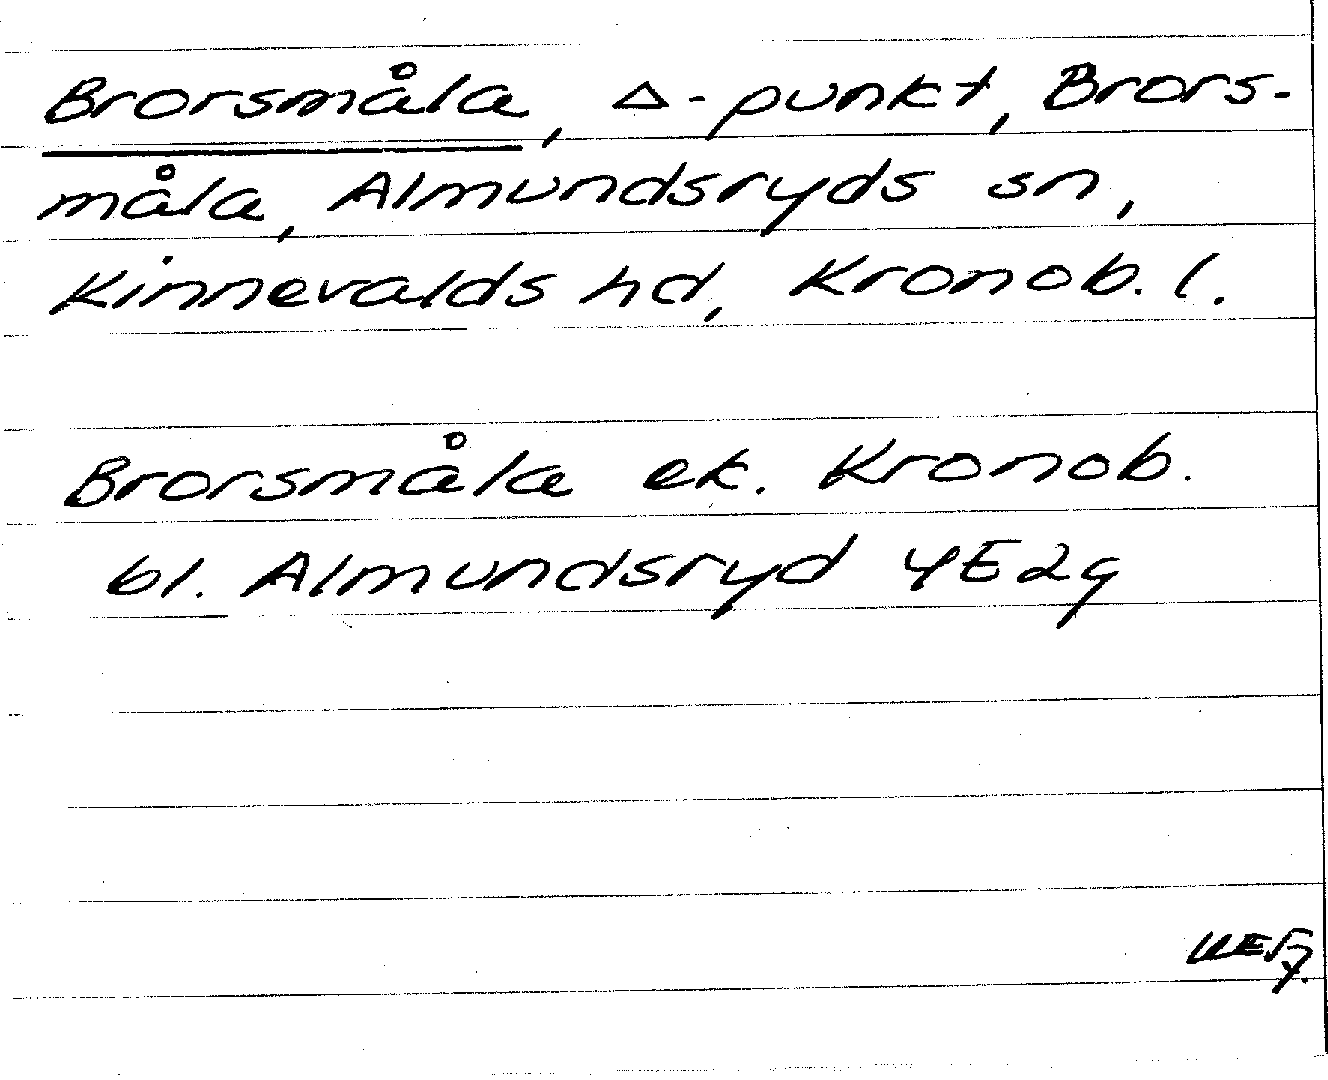 Brorsmåla, △-punkt, Brors-
måla, Almundsryds sn,
Kinnevalds hd, Kronob. l.
Brorsmåla ek. Kronob.
bl. Almundsryd 4E2g